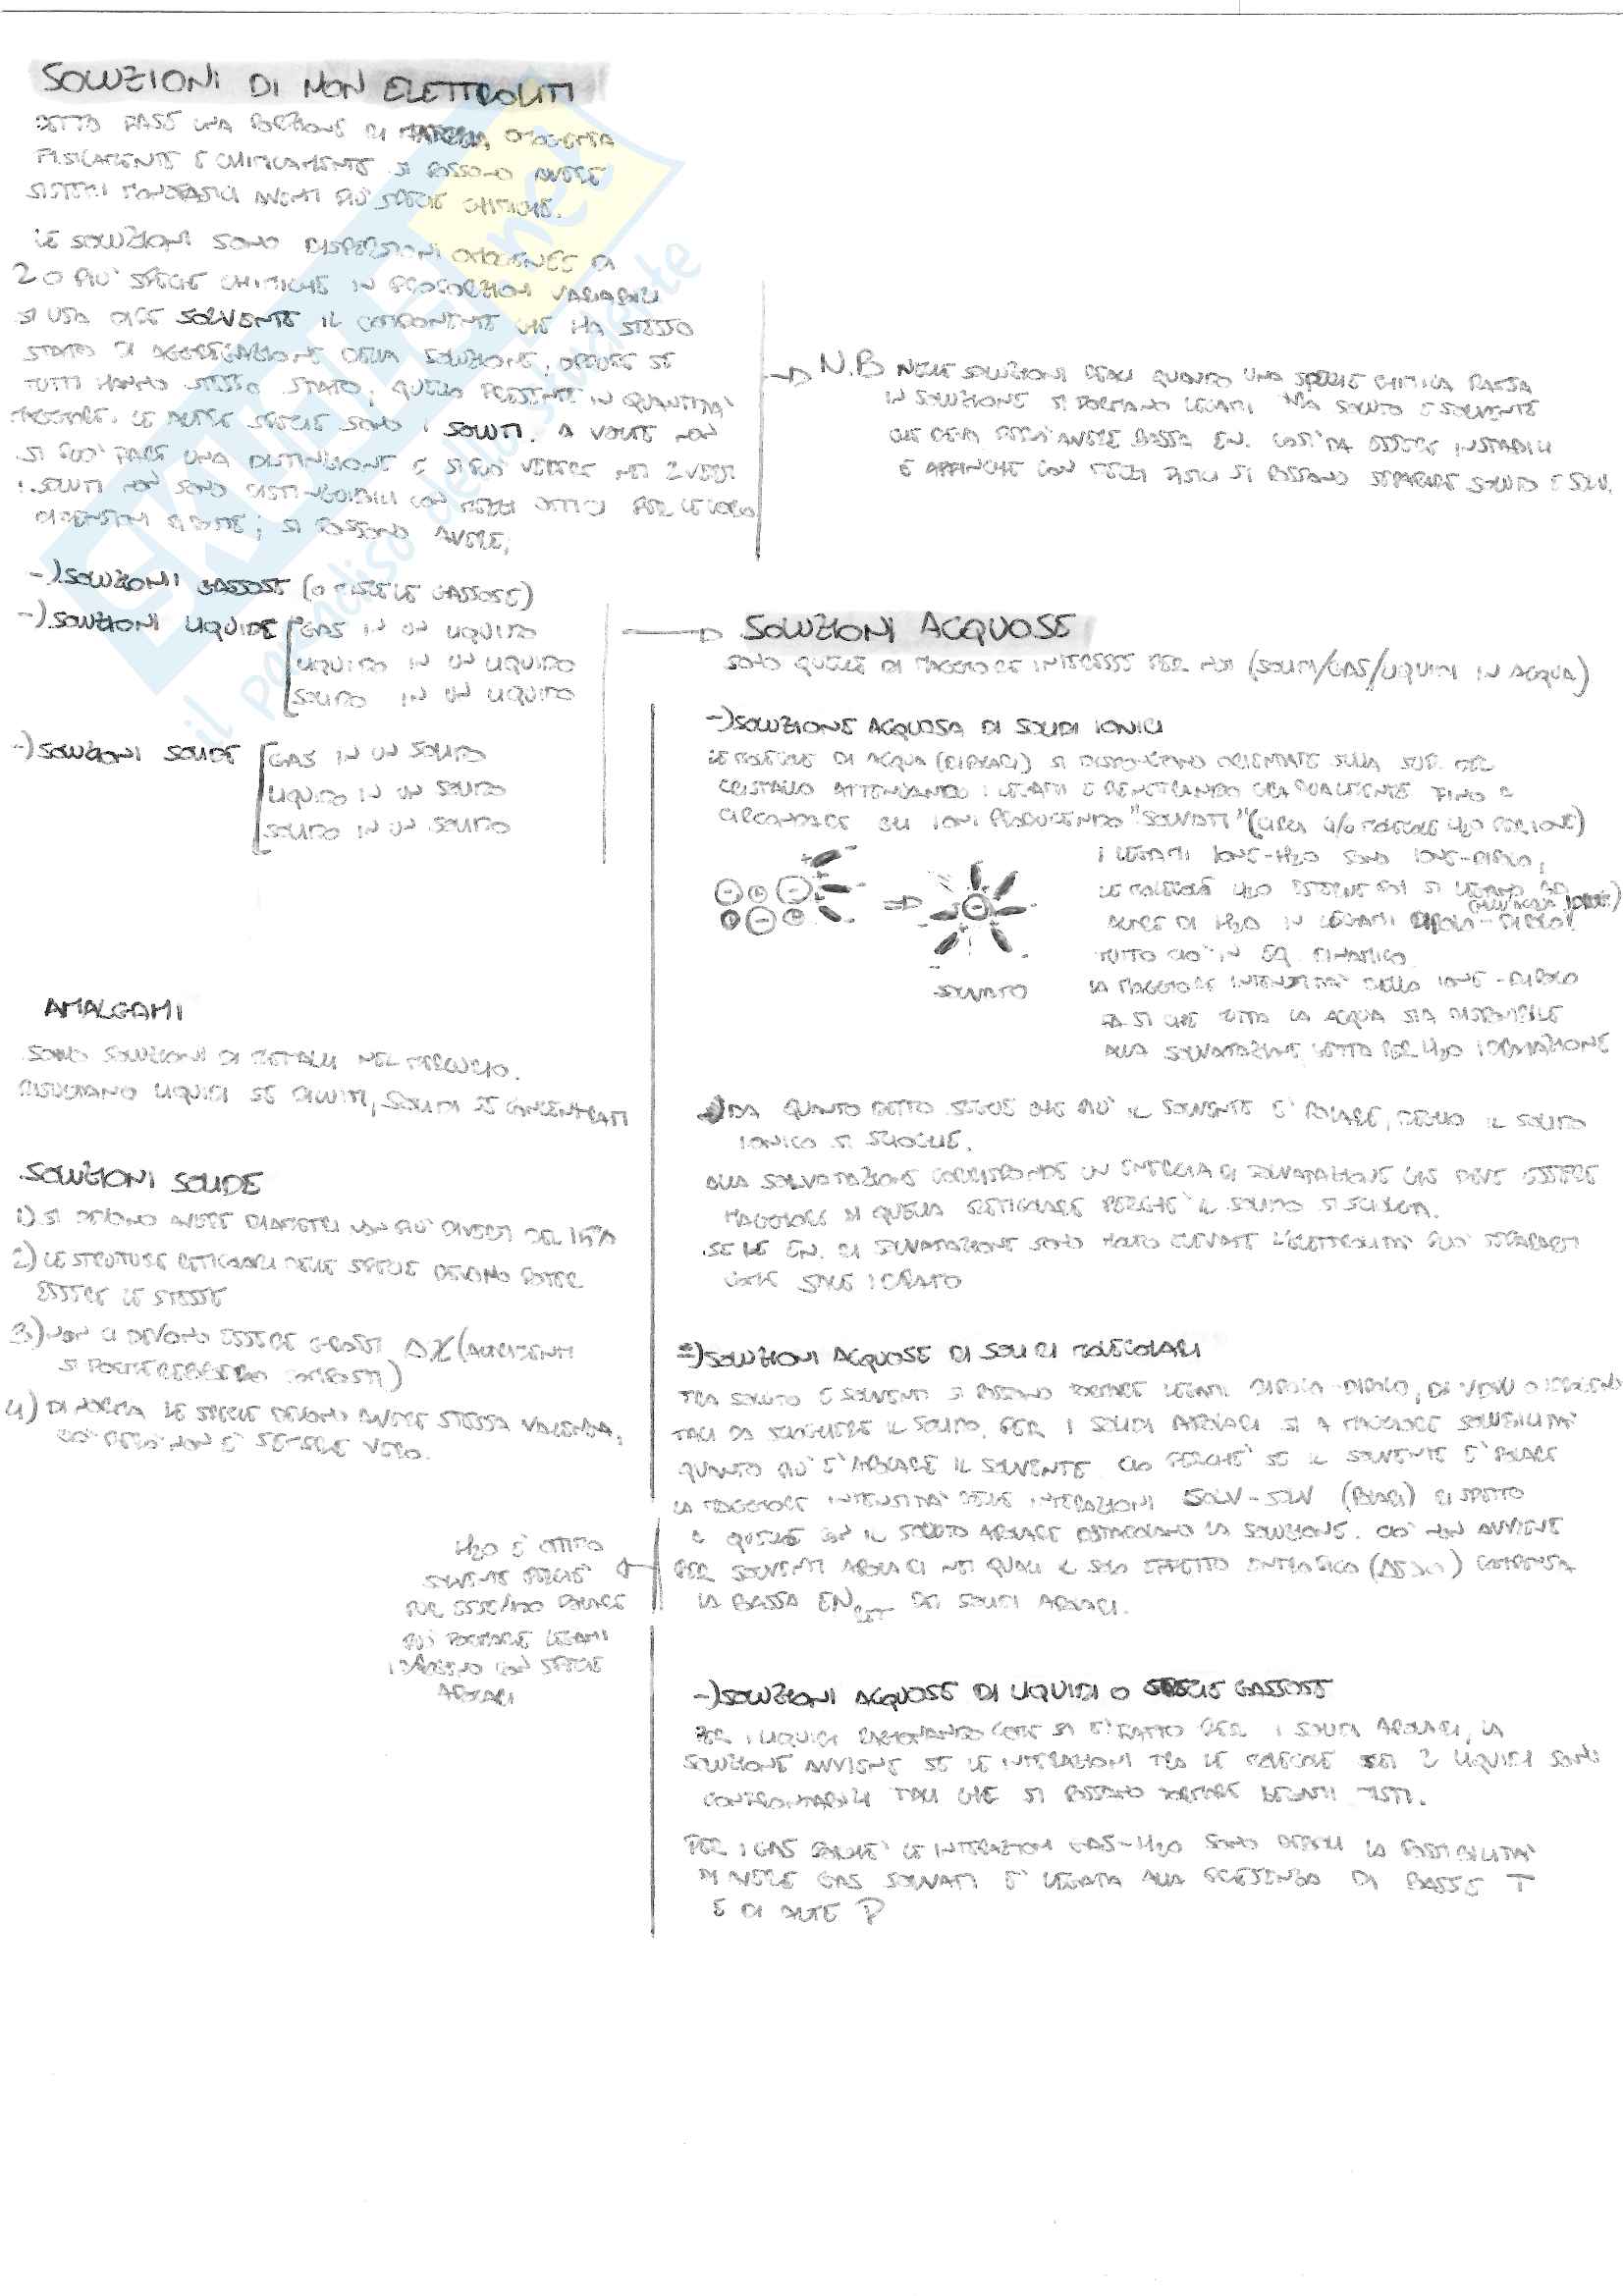 SOLUZIONI DI NON ELETTROLITI
DETTO FASE UNA PORZIONE DI MATERIA OMOGENEA
FISICAMENTE E CHIMICAMENTE SI POSSONO AVERE
SISTEMI MONOFASICI AVENTI PIÙ SPECIE CHIMICHE.
LE SOLUZIONI SONO DISPERSIONI OMOGENEE DI
2 O PIÙ SPECIE CHIMICHE IN PROPORZIONI VARIABILI
SI USA DIRE SOLVENTE IL COMPONENTE CHE HA STESSO
STATO DI AGGREGAZIONE DELLA SOLUZIONE, OPPURE SE
TUTTI HANNO STESSO STATO, QUELLO PRESENTE IN QUANTITÀ
MAGGIORE. LE ALTRE SPECIE SONO I SOLUTI. A VOLTE NON
SI PUÒ FARE UNA DISTINZIONE E SI PUÒ VEDERE NEI 2 VERSI
I SOLUTI NON SONO DISTINGUIBILI CON MEZZI OTTICI PER LE LORO
DIMENSIONI RIDOTTE; SI POSSONO AVERE;
-) SOLUZIONI GASSOSE (O MISCELE GASSOSE)
-) SOLUZIONI LIQUIDE GAS IN UN LIQUIDO
LIQUIDO IN UN LIQUIDO
SOLIDO IN UN LIQUIDO
-) SOLUZIONI SOLIDE GAS IN UN SOLIDO
LIQUIDO IN UN SOLIDO
SOLIDO IN UN SOLIDO
AMALGAMI
SONO SOLUZIONI DI METALLI NEL MERCURIO.
RISULTANO LIQUIDI SE DILUITI, SOLIDI SE CONCENTRATI
SOLUZIONI SOLIDE
1) SI DEVONO AVERE DIAMETRI NON PIÙ DIVERSI DEL 15%
2) LE STRUTTURE RETICOLARI DELLE SPECIE DEVONO POTER
ESSERE LE STESSE
3) NON CI DEVONO ESSERE GROSSI ΔX (ALTRIMENTI
SI FORMEREBBERO COMPOSTI)
4) DI NORMA LE SPECIE DEVONO AVERE STESSA VALENZA,
CIÒ PERÒ NON È SEMPRE VERO.
N.B NELLE SOLUZIONI REALI QUANDO UNA SPECIE CHIMICA PASSA
IN SOLUZIONE SI FORMANO LEGAMI TRA SOLUTO E SOLVENTE
CHE DEVE PERÒ AVERE BASSA EN. COSÌ DA ESSERE INSTABILI
E AFFINCHÈ CON MEZZI FISICI SI POSSANO SEPARARE SOLUTO E SOLV.
SOLUZIONI ACQUOSE
SONO QUELLE DI MAGGIORE INTERESSE PER NOI (SOLIDI/GAS/LIQUIDI IN ACQUA)
-) SOLUZIONE ACQUOSA DI SOLIDI IONICI
LE MOLECOLE DI ACQUA (DIPOLARI) SI DISPONGONO ORIENTATE SULLA SUP. DEL
CRISTALLO ATTENUANDO I LEGAMI E PENETRANDO GRADUALMENTE FINO A
CIRCONDARE GLI IONI PRODUCENDO "SOLVATI" (CIRCA 4/6 MOLECOLE H2O PER IONE)
I LEGAMI IONE-H2O SONO IONE-DIPOLO,
LE MOLECOLE H2O ESTERNE POI SI LEGANO AD
ALTRE DI H2O IN LEGAMI DIPOLO-DIPOLO
TUTTO CIÒ IN EQ. DINAMICO
LA MAGGIORE INTENSITÀ DELLO IONE-DIPOLO
FA SÌ CHE TUTTA LA ACQUA SIA DISPONIBILE
ALLA SOLVATAZIONE, DETTA PER H2O IDRATAZIONE
SOLVATO
DA QUANTO DETTO SEGUE CHE PIÙ IL SOLVENTE È POLARE, MEGLIO IL SOLIDO
IONICO SI SCIOGLIE.
ALLA SOLVATAZIONE CORRISPONDE UN ENERGIA DI SOLVATAZIONE CHE DEVE ESSERE
MAGGIORE DI QUELLA RETICOLARE PERCHÈ IL SOLIDO SI SCIOLGA.
SE LE EN. DI SOLVATAZIONE SONO MOLTO ELEVATE L'ELETTROLITA PUÒ SEPARARSI
COME SALE IDRATO
-) SOLUZIONI ACQUOSE DI SOLIDI MOLECOLARI
TRA SOLUTO E SOLVENTI SI POSSONO FORMARE LEGAMI DIPOLO-DIPOLO, DI VDW O IDROGENO
TALI DA SCIOGLIERE IL SOLIDO. PER I SOLIDI APOLARI SI A MAGGIORE SOLUBILITÀ
QUANTO PIÙ È APOLARE IL SOLVENTE. CIÒ PERCHÈ SE IL SOLVENTE È POLARE
LA MAGGIORE INTENSITÀ DELLE INTERAZIONI SOLV-SOLV (POLARI) RISPETTO
A QUELLE CON IL SOLUTO APOLARE OSTACOLANO LA SOLUZIONE. CIÒ NON AVVIENE
PER SOLVENTI APOLARI NEI QUALI IL SOLO EFFETTO ENTROPICO (ΔS>0) COMPENSA
LA BASSA EN RET DEI SOLIDI APOLARI.
H2O È OTTIMO
SOLVENTE PERCHÈ
PUR ESSENDO POLARE
PUÒ FORMARE LEGAMI
IDROGENO CON SPECIE
APOLARI
-) SOLUZIONI ACQUOSE DI LIQUIDI O SPECIE GASSOSE
PER I LIQUIDI RAGIONANDO COME SI È FATTO PER I SOLIDI APOLARI, LA
SOLUZIONE AVVIENE SE LE INTERAZIONI TRA LE MOLECOLE DEI 2 LIQUIDI SONO
CONFRONTABILI TALI CHE SI POSSANO FORMARE LEGAMI MISTI.
PER I GAS POICHÈ LE INTERAZIONI GAS-H2O SONO DEBOLI LA POSSIBILITÀ
DI AVERE GAS SOLVATI È LEGATA ALLA PRESENZA DI BASSE T
E DI ALTE P